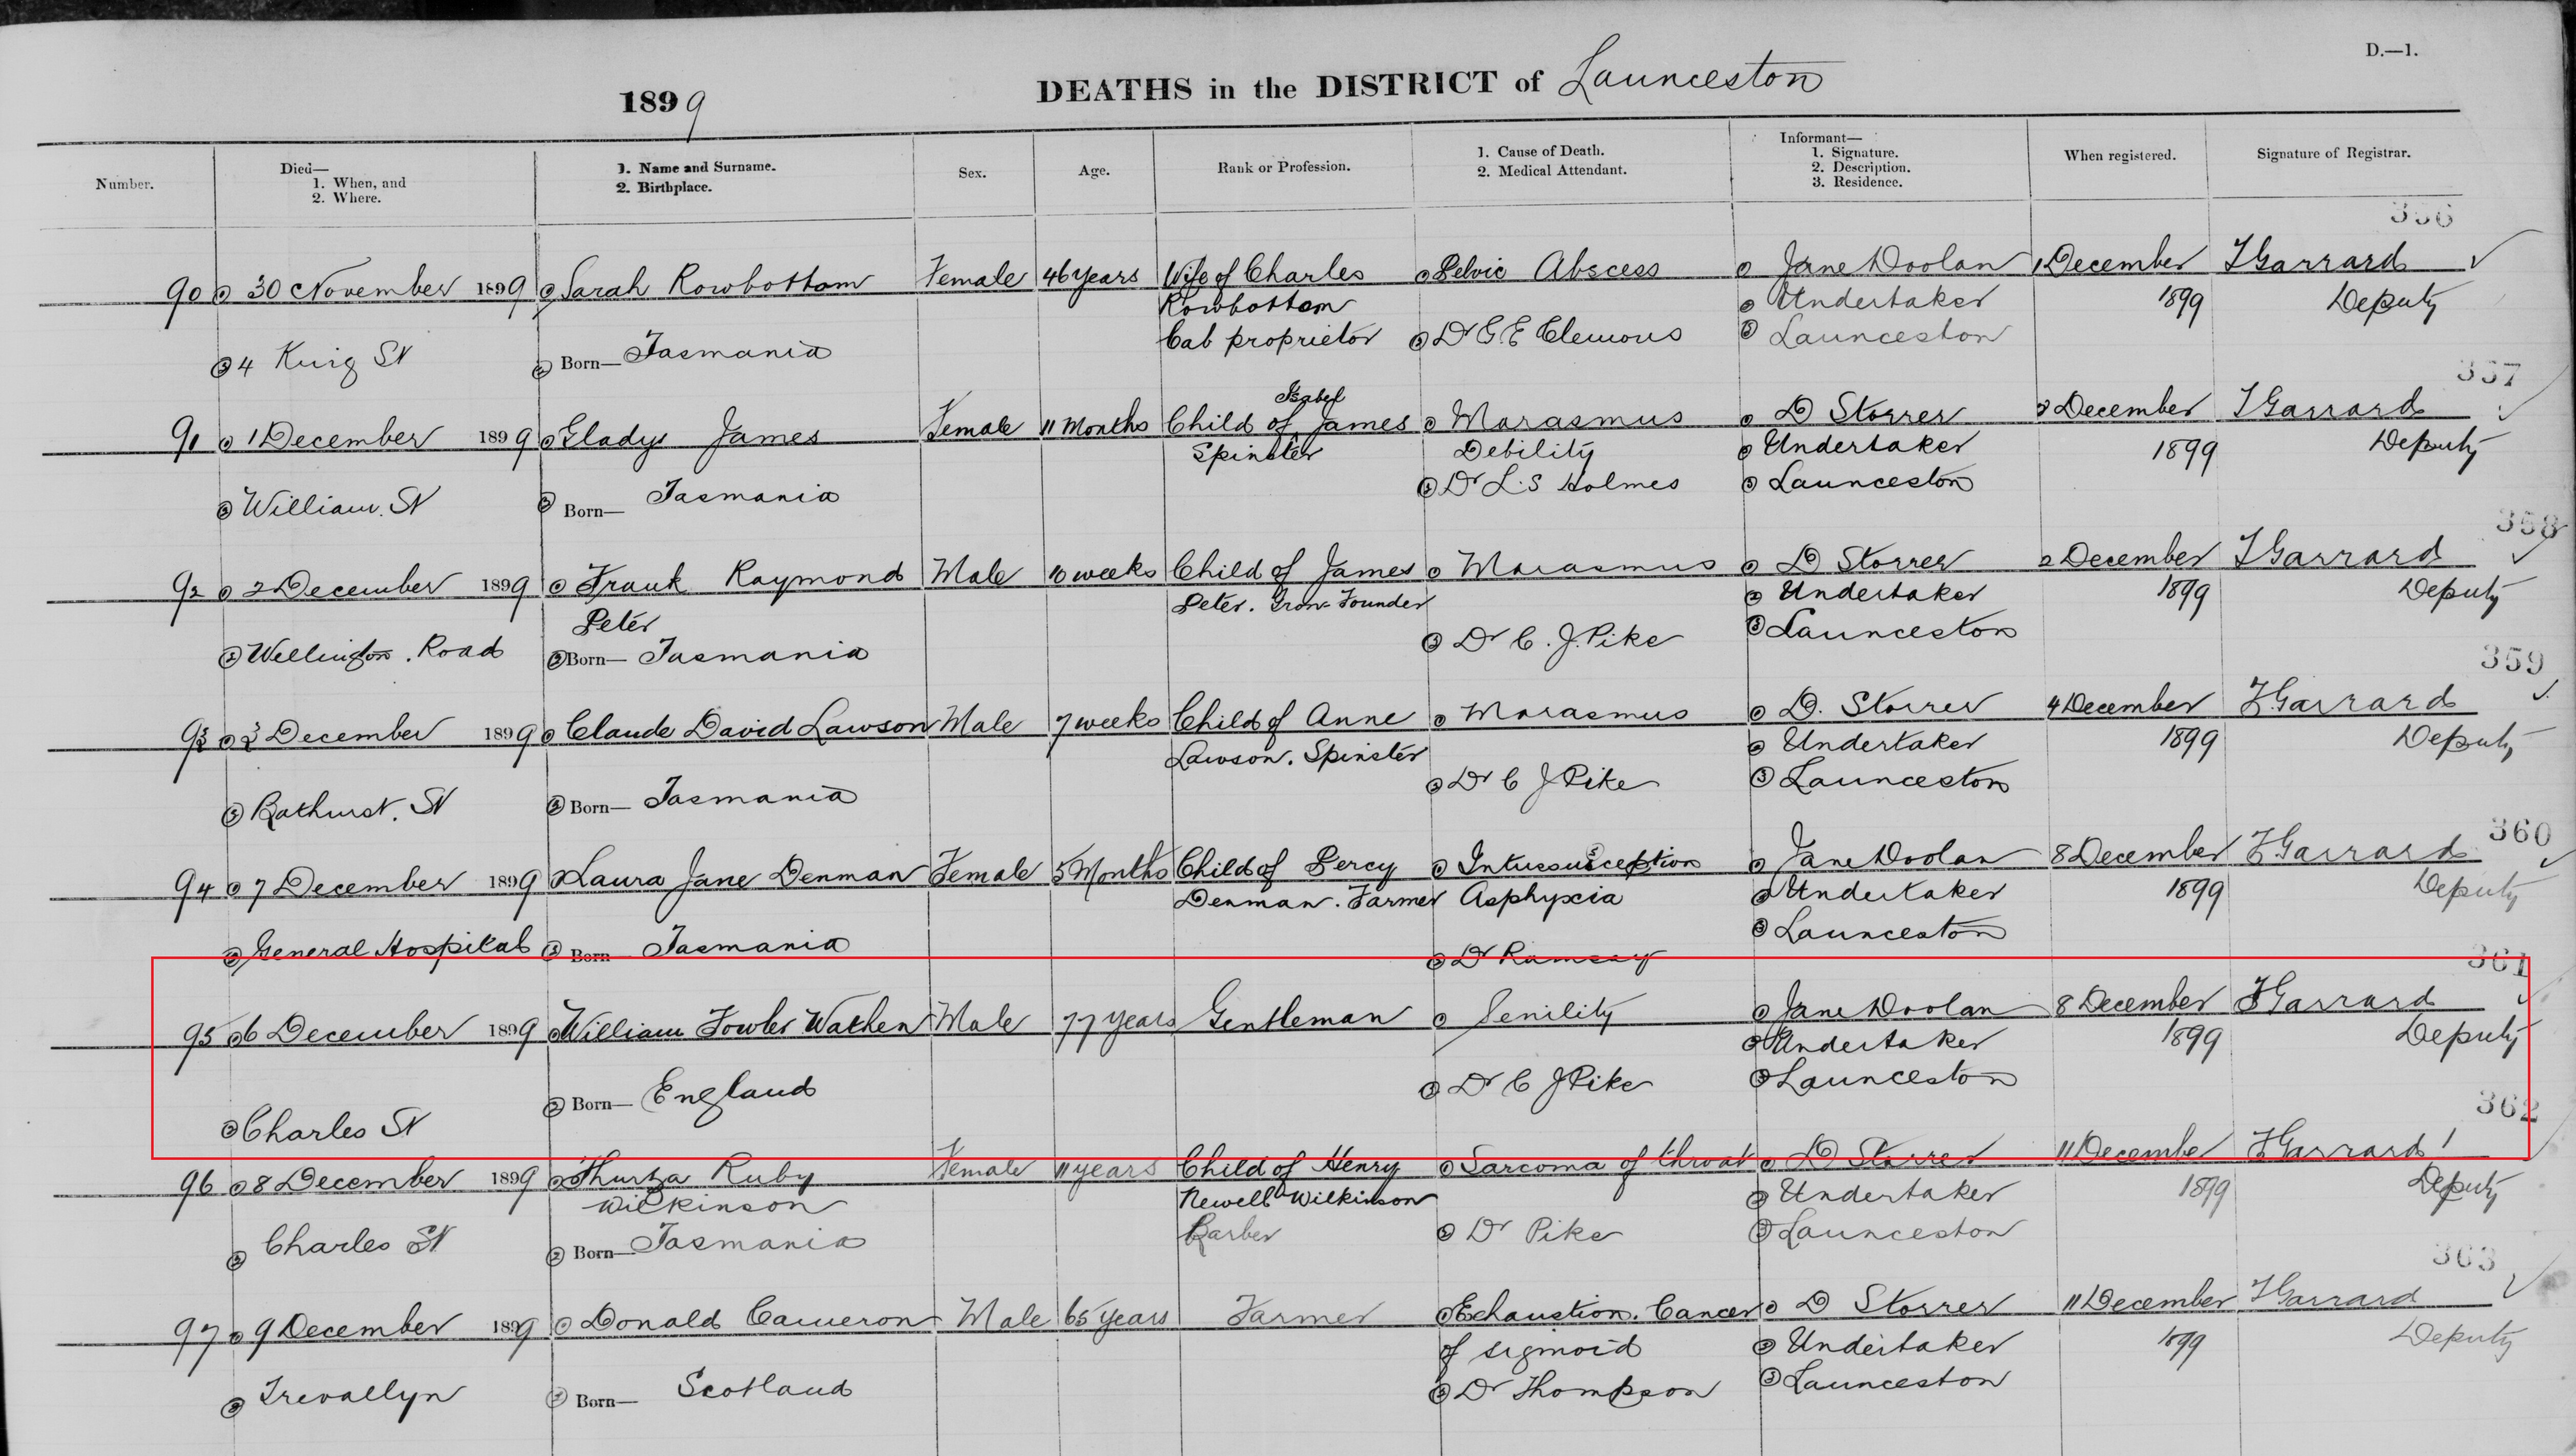 D.—1.
1899 DEATHS in the DISTRICT of Launceston
Number.
Died—
1. When, and
2. Where.
1. Name and Surname.
2. Birthplace.
Sex.
Age.
Rank or Profession.
1. Cause of Death.
2. Medical Attendant.
Informant—
1. Signature.
2. Description.
3. Residence.
When registered.
Signature of Registrar.
356
90 30 November 1899 Sarah Rowbottom Female 46 years Wife of Charles Pelvic Abscess Jane Doolan 1 December F Garrard
Rowbottom Undertaker 1899 Deputy
4 King St Born— Tasmania Cab proprietor Dr G E Clemons Launceston
357
Isabel
91 1 December 1899 Gladys James Female 11 Months Child of James Marasmus D Storrer 2 December F Garrard
Spinster Debility Undertaker 1899 Deputy
William St Born— Tasmania Dr L. S Holmes Launceston
358
92 2 December 1899 Frank Raymond Male 10 weeks Child of James Marasmus D Storrer 2 December F Garrard
Peter Peter. Iron Founder Undertaker 1899 Deputy
Wellington Road Born— Tasmania Dr C. J. Pike Launceston
359
93 3 December 1899 Claude David Lawson Male 7 weeks Child of Anne Marasmus D. Storrer 4 December F Garrard
Lawson. Spinster Undertaker 1899 Deputy
Bathurst. St Born— Tasmania Dr C J Pike Launceston
360
94 7 December 1899 Laura Jane Denman Female 5 Months Child of Percy Intussusception Jane Doolan 8 December F Garrard
Denman. Farmer Asphyxia Undertaker 1899 Deputy
General Hospital Born— Tasmania Dr Ramsay Launceston
361
95 6 December 1899 William Fowler Wathen Male 77 years Gentleman Senility Jane Doolan 8 December F Garrard
Undertaker 1899 Deputy
Charles St Born— England Dr C J Pike Launceston
362
96 8 December 1899 Thurza Ruby Female 11 years Child of Henry Sarcoma of throat D Storrer 11 December F Garrard
Wilkinson Newell Wilkinson Undertaker 1899 Deputy
Charles St Born— Tasmania Barber Dr Pike Launceston
363
97 9 December 1899 Donald Cameron Male 65 years Farmer Exhaustion. Cancer D Storrer 11 December F Garrard
of sigmoid Undertaker 1899 Deputy
Trevallyn Born— Scotland Dr Thompson Launceston